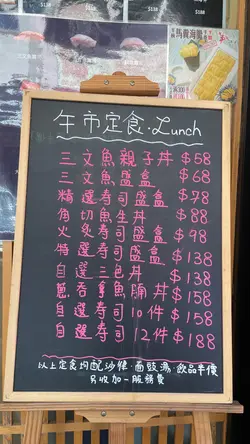 $138
$138
馬糞海膽
午市定食·Lunch
三文魚親子丼 $68
三文魚盛盒 $68
精選壽司盛盒 $78
角切魚生丼 $88
火炙壽司盛盒 $98
特選壽司盛盒 $138
自選三色丼 $138
蔥吞拿魚腩丼 $158
自選壽司10件 $158
自選壽司12件 $188
以上定食均配沙律、麵豉湯、飲品半價
另收加一服務費